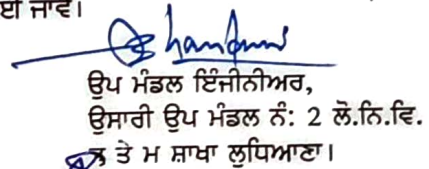 ਈ ਜਾਵੇ।
ਉਪ ਮੰਡਲ ਇੰਜੀਨੀਅਰ,
ਉਸਾਰੀ ਉਪ ਮੰਡਲ ਨੰ: 2 ਲੋ.ਨਿ.ਵਿ.
ਤੇ ਮ ਸ਼ਾਖਾ ਲੁਧਿਆਣਾ।